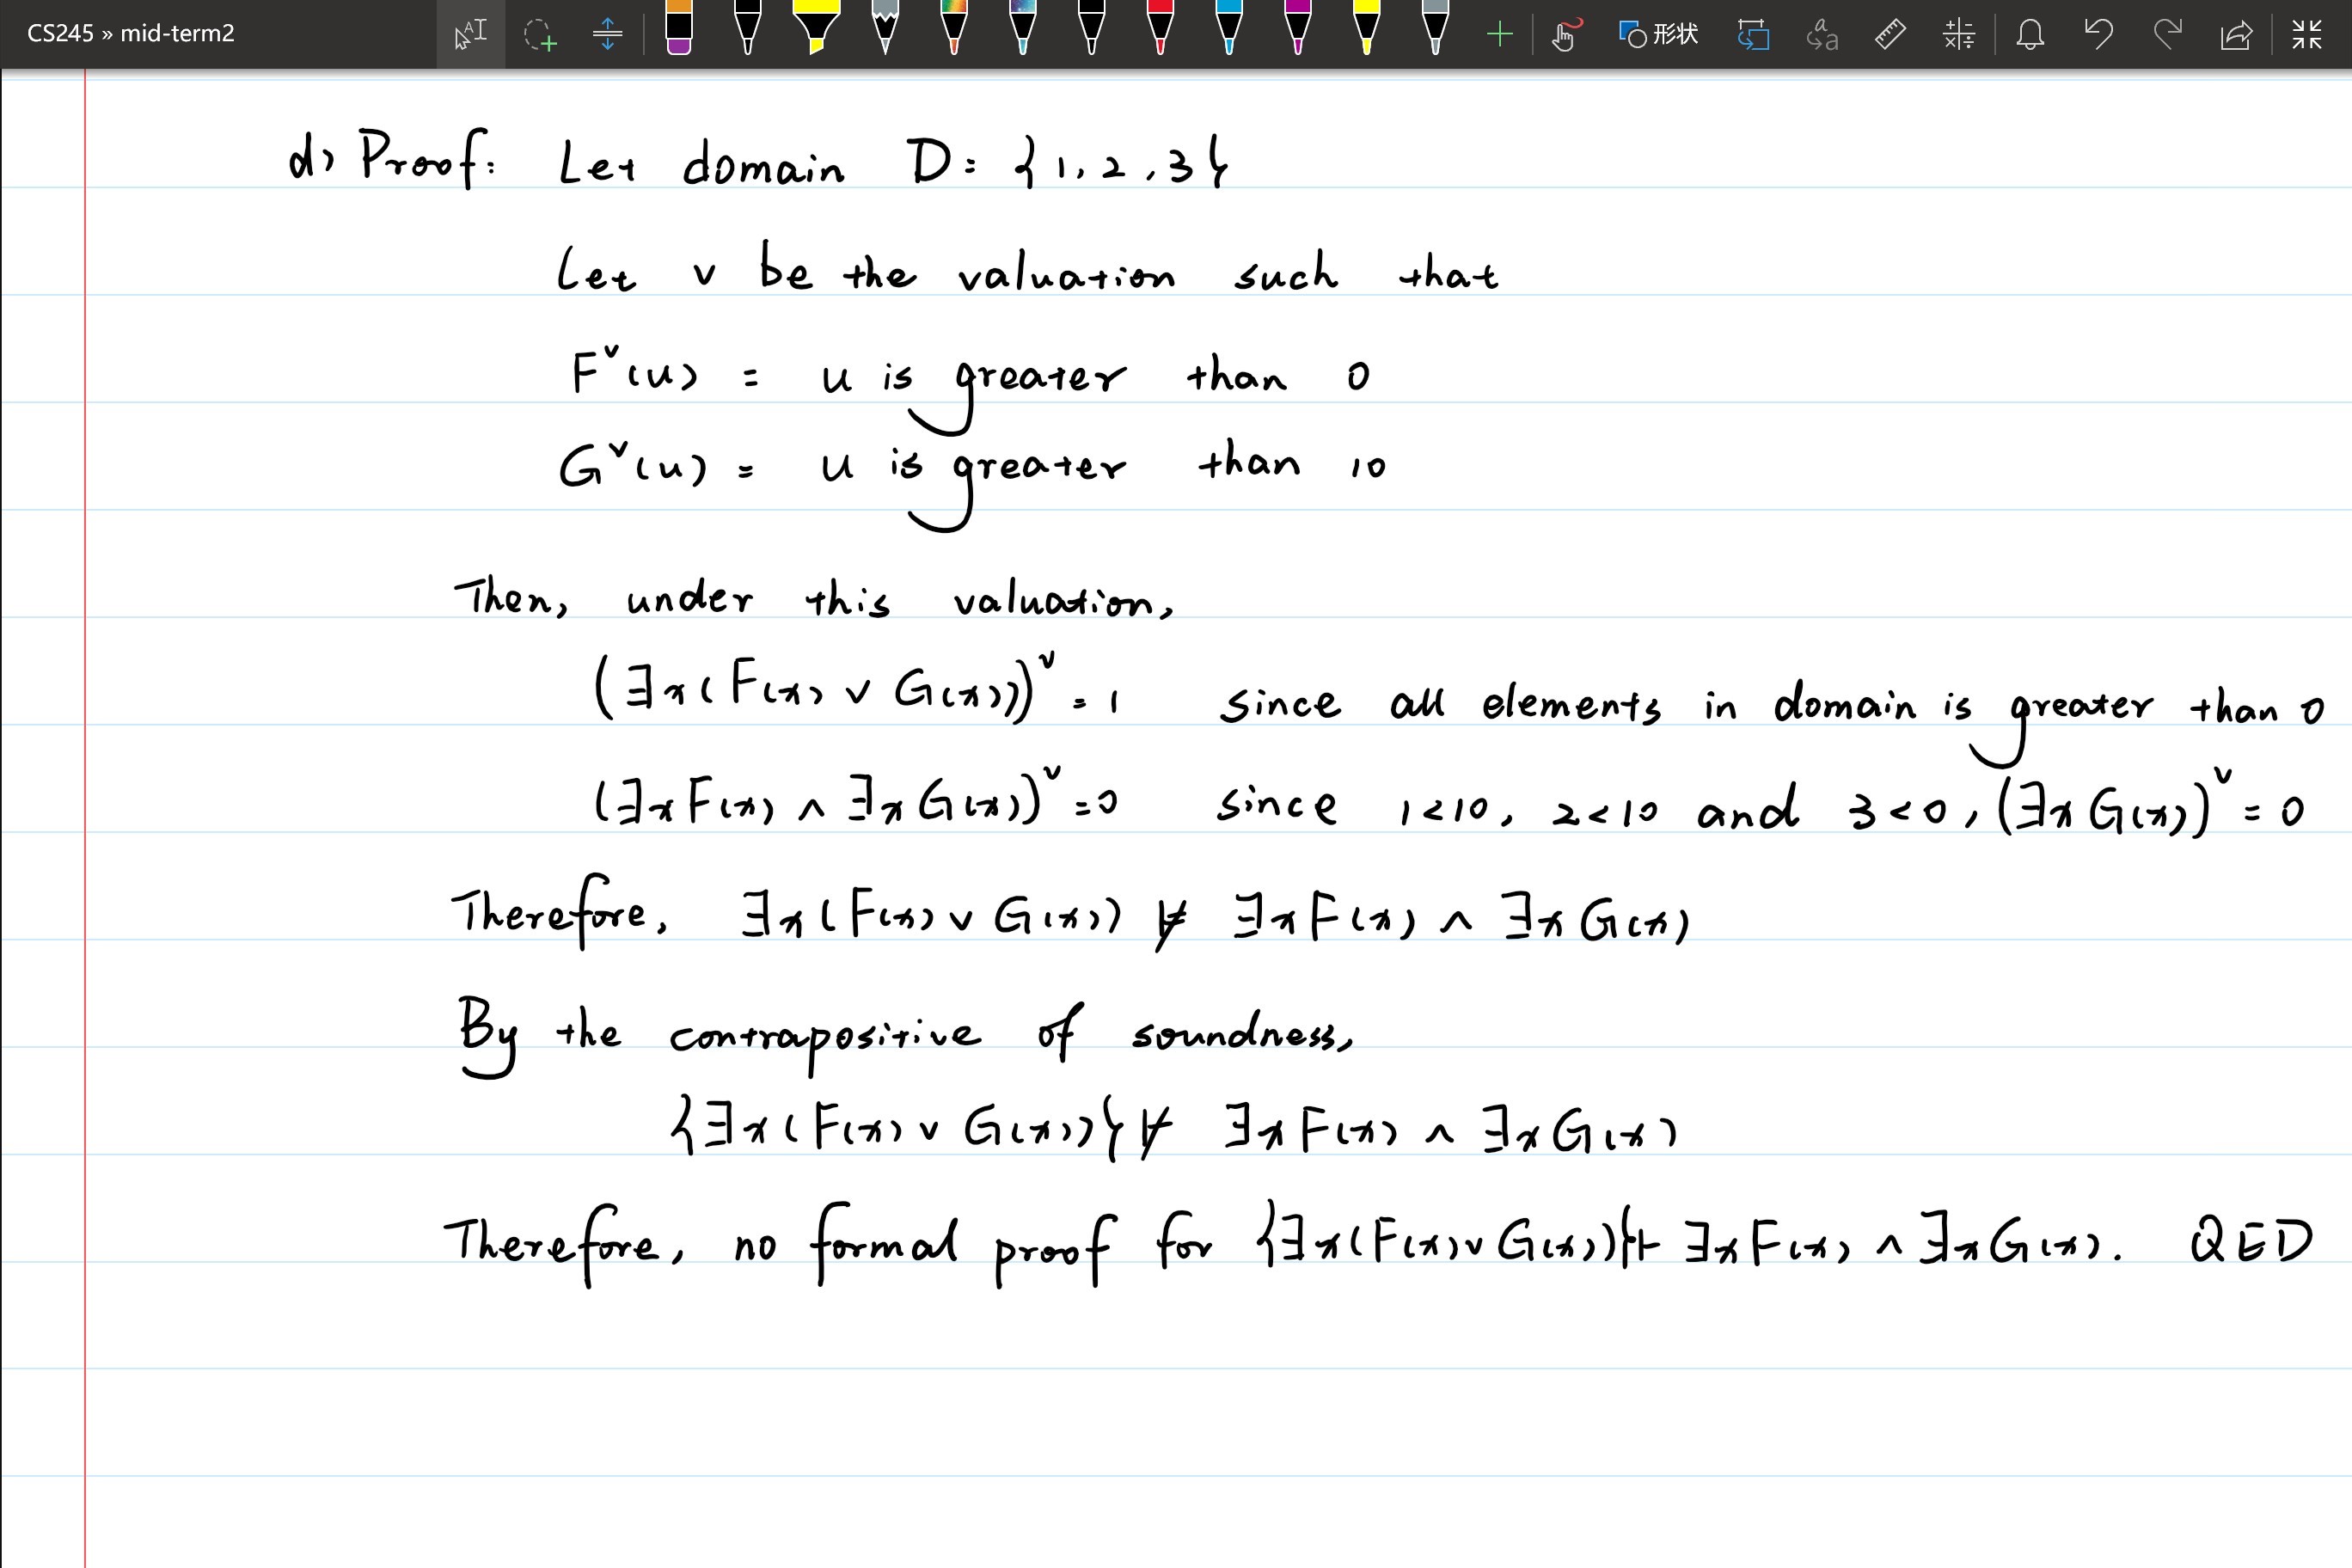 CS245 » mid-term2
形状
d) Proof: Let domain D = {1, 2, 3}
Let v be the valuation such that
Fᵛ(u) = u is greater than 0
Gᵛ(u) = u is greater than 10
Then, under this valuation,
(∃x(F(x) ∨ G(x)))ᵛ = 1 since all elements in domain is greater than 0
(∃xF(x) ∧ ∃xG(x))ᵛ = 0 since 1<10, 2<10 and 3<0, (∃xG(x))ᵛ = 0
Therefore, ∃x(F(x) ∨ G(x)) ⊭ ∃xF(x) ∧ ∃xG(x)
By the contrapositive of soundness,
{∃x(F(x) ∨ G(x))} ⊬ ∃xF(x) ∧ ∃xG(x)
Therefore, no formal proof for {∃x(F(x) ∨ G(x))} ⊢ ∃xF(x) ∧ ∃xG(x). QED